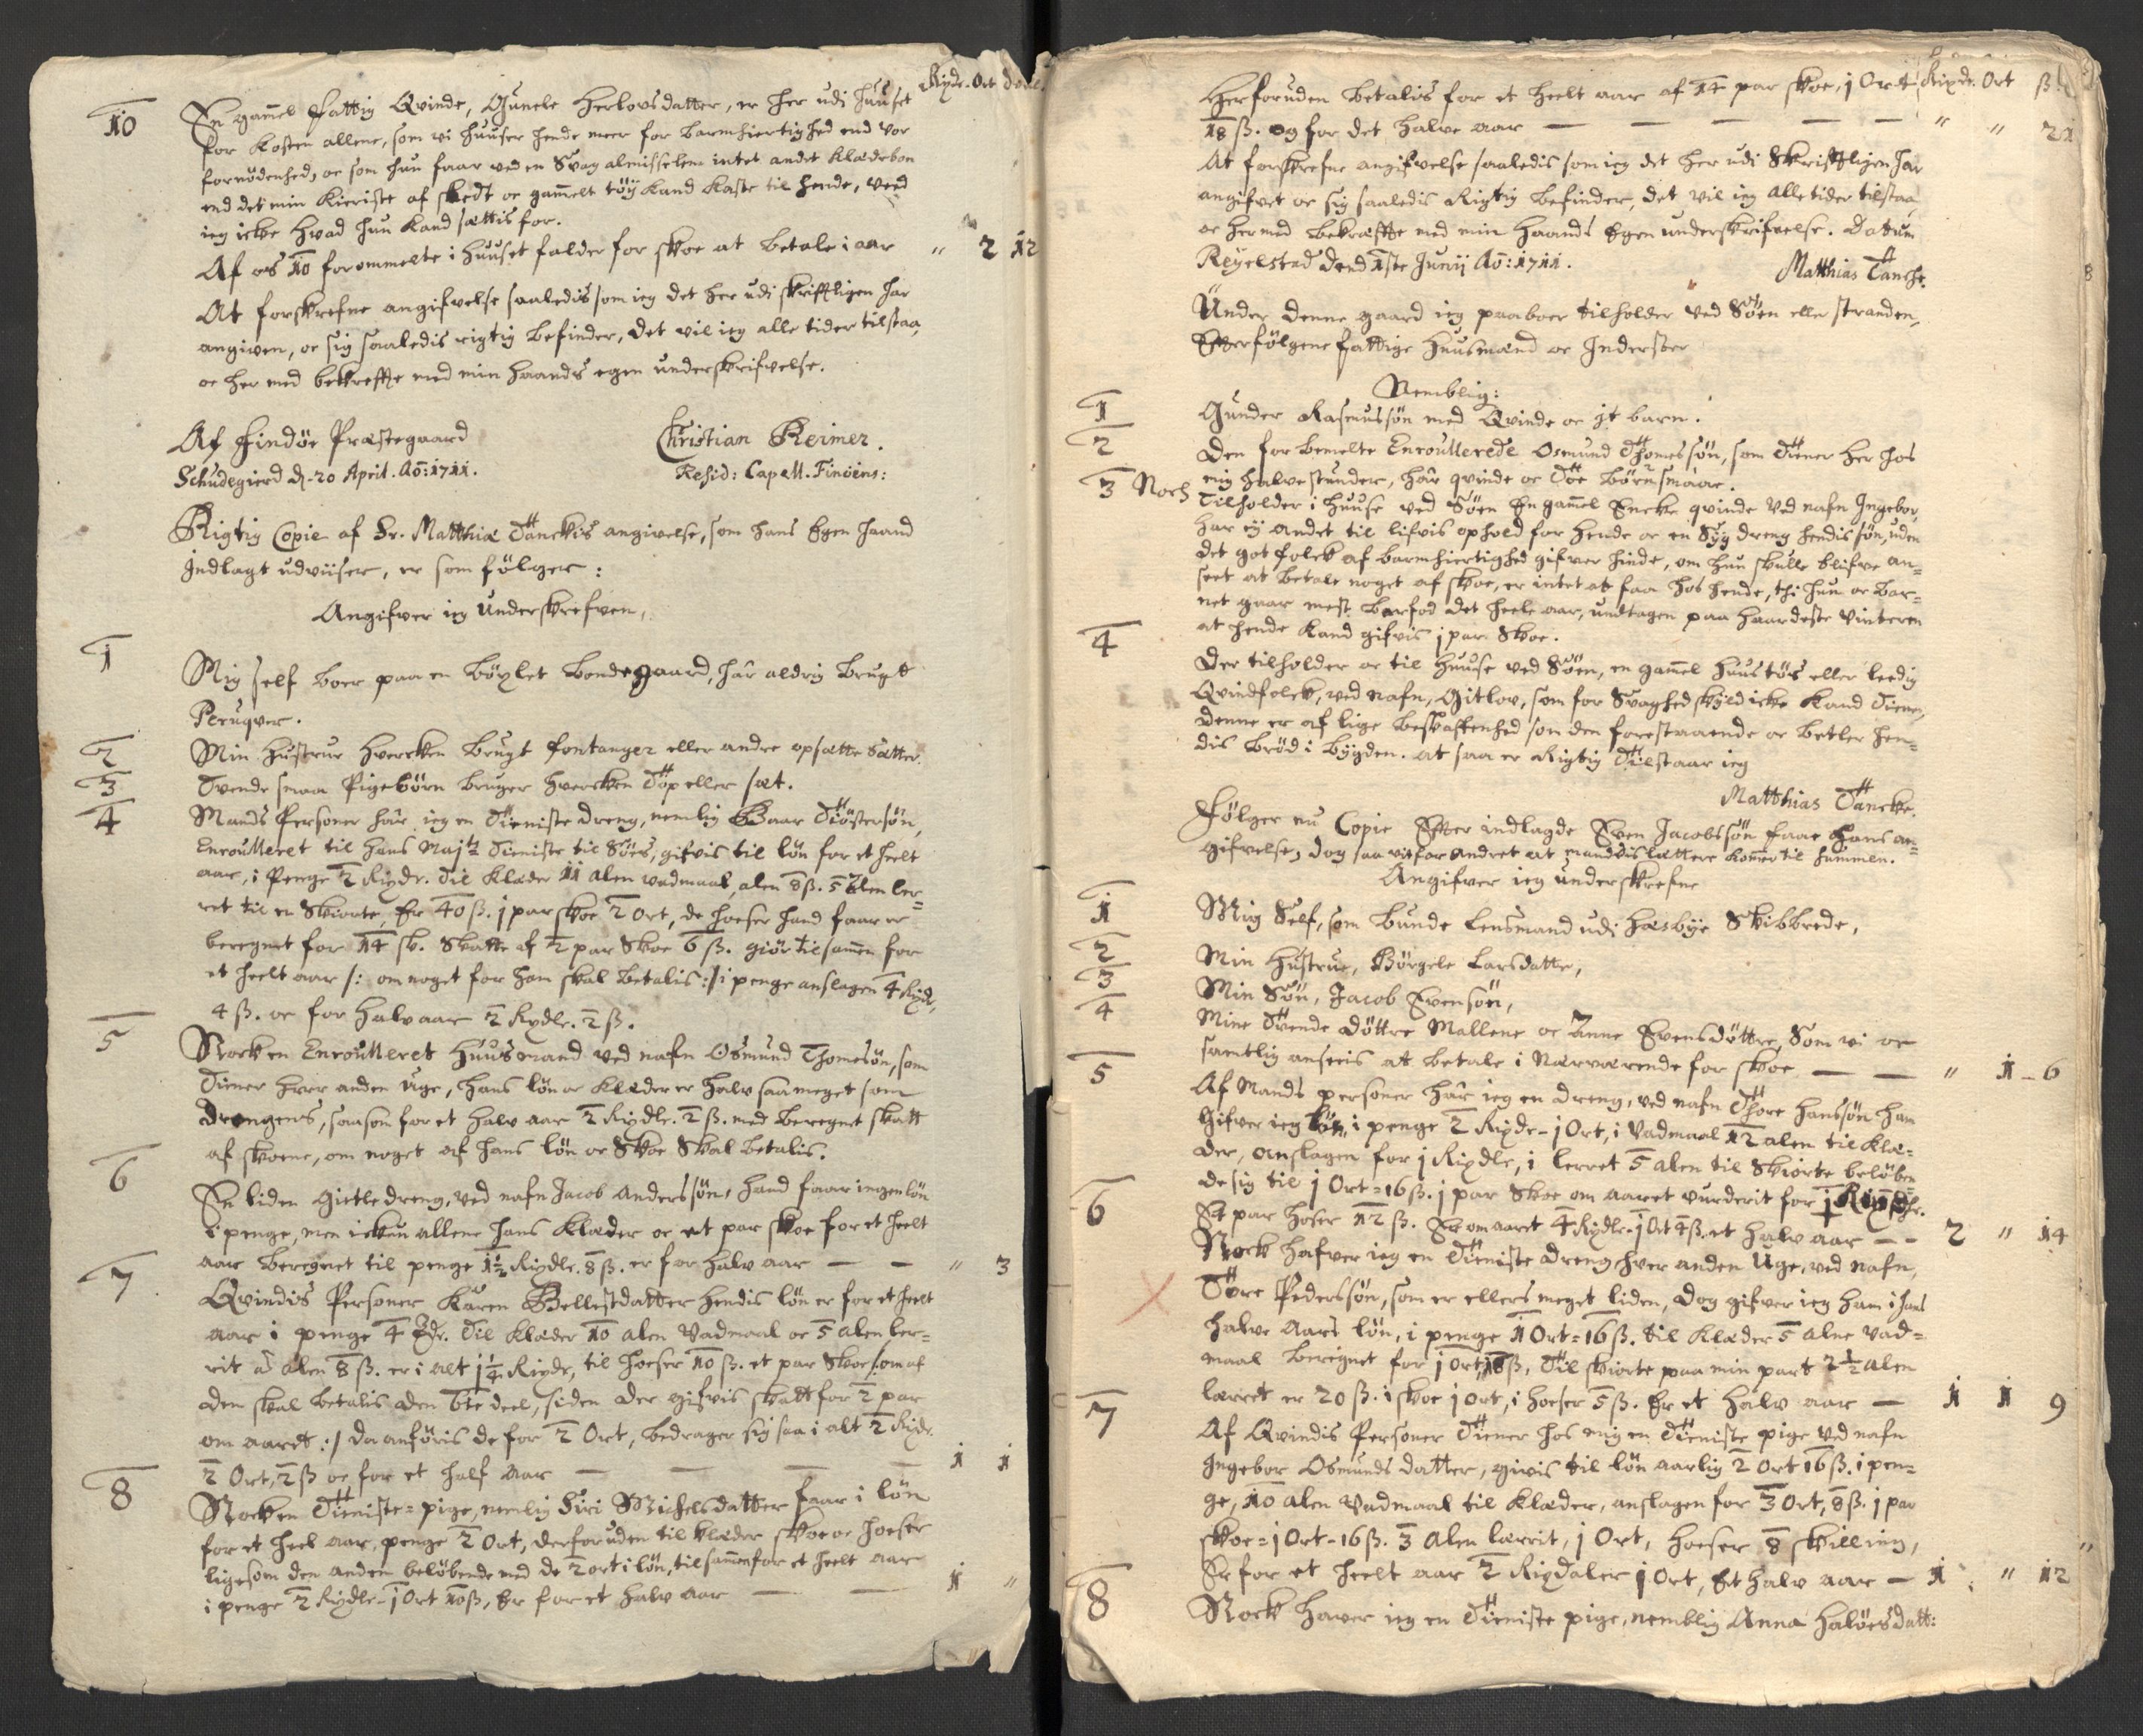 Rixdr. Ort
10 En gamel fattig Qvinde, Gunele Herlovsdatter, er her udi huuset
for kosten allene, som vi huuser hende meer for barmhiertighed end vor
fornödenhed, oc som hun faar ved en Svag almisselem intet andet klædebon
end det min kieriste af sledt oc gamelt töy kand kaste til hende, veed
ieg icke hvad hun kand sættis for.
Af os 10 forommelte i huuset falder for skoe at betale i aar " 2 12
At forskrefne angifvelse saaledis som ieg det her udi skriftligen har
angiven, oc sig saaledis rigtig befinder, det vil ieg alle tider tilstaa,
oc her med bekreffte med min haands egen underskrifvelse.
Af Findöe Præstegaard
Christian Reimer.
Schudegierd d. 20 April. Aõ: 1711.
Resid: Capell. Finöens:
Rigtig Copie af Hr. Matthiæ Tanckis angivelse, som hans Egen haand
Indlagt udviiser, er som fölger:
Angifver ieg underskrefven,
1 Mig self boer paa en böxlet bondegaard, har aldrig brugt
Peruqver.
2 Min hustrue hvercken brugt fontanger eller andre opsatte Sætter.
3 Tvende smaa Pigebörn bruger hvercken Töp eller sæt.
4 Mands Personer har ieg en Tieniste dreng, nemlig Baar Tiöstersön,
Enroulleret til hans Majts Tieniste til Söes, gifvis til lön for et heelt
aar, i Penge 2 Rixdr. til klæder 11 alen vadmaal, alen 8 ß. 5 alen ler-
ret til en Skiorte, Er 40 ß. 1 par skoe 2 Ort, de hoeser hand faar er
beregnet for 14 sk. Skatte af 2 par Skoe 6 ß. giör tilsamen for
et heelt aar /: om noget for ham skal betalis :/ i penge anslagen 4 Rixdr.
4 ß. oc for halv aar 2 Rixdlr. 2 ß.
5 Nock en Enroulleret huusmand ved nafn Osmund Thomesön, som
Tiener hver anden uge, hans lön oc klæder er halv saa meget som
Drengens, saasom for et halv aar 2 Rixdlr. 2 ß. med beregnet skatt
af skoene, om noget af hans lön oc Skoe Skal betalis.
6 En liden giætledreng, ved nafn Jacob Anderssön, hand faar ingen lön
i penge, men ickun allene hans klæder oc et par skoe for et heelt
aar beregnet til penge 1½ Rixdlr. 8 ß. er for halv aar — — " 3
7 Qvindis Personer Karen Bellestdatter hendis lön er for et heelt
aar i penge 4 Rdr. til klæder 10 alen Vadmaal oc 5 alen ler-
rit a alen 8 ß. er i alt 1¼ Rixdr, til hoeser 10 ß. et par skoe /: om af
dem skal betalis den 6te deel, siden der gifvis skatt for 2 par
om aaret :/ da anföris de for 2 Ort, bedrager sig saa i alt 2 Rixdr.
2 Ort, 2 ß oc for et half aar — — — — 1 1
8 Nock en Tieniste-pige, nemlig Siri Michelsdatter faar i lön
for et heel aar, penge 2 Ort, derforuden til klæder skoe oc hoeser
ligesom den anden belöbende med de 2 ort i lön, tilsamen for et heelt aar
i penge 2 Rixdlr - 1 Ort 10 ß, Er for et halv aar — — 1 "
Rixdr. Ort ß
Herforuden betalis for et heelt aar af 14 par skoe, 1 Ort
18 ß. og for det halve aar — — — — — " " 21
At forskrefne angifvelse saaledis som ieg det her udi Skriftligen har
angifvet oc sig saaledis Rigtig befinder, det vil ieg alle tider tilstaa
oc hermed bekræffte med min haands Egen underskrifvelse. Datum
Reyelstad dend 1ste Junij Aõ: 1711.
Matthias Tanche.
Under denne gaard ieg paaboer tilholder ved Söen eller stranden,
Efterfölgene fattige huusmænd oc Inderster
Nemblig:
1 Gunder Rasmussön med Qvinde oc it barn.
2 Den forbemelte Enroullerede Osmund Thomessön, som Tiener her hos
mig halve stunder, har qvinde oc Toe börn smaae.
3 Noch Tilholder i huuse ved Söen En gamel Encke qvinde ved nafn Ingebor,
har ey andet til lifvis ophold for hende oc en Syg dreng hendis sön, uden
det got folck af barmhiertighed gifver hinde, om hun skulle blifve an-
seet at betale noget af skoe, er intet at faa hos hende, thi hun oc bar-
net gaar mest barfod det heele aar, undtagen paa haardeste vinteren
at hende kand gifvis 1 par Skoe.
4 Der tilholder oc til huuse ved Söen, en gamel huustös eller leedig
Qvindfolck, ved nafn, Gitlov, som for Svaghed skyld icke kand Tiene,
denne er af lige beskaffenhed som den forestaaende oc betler hen-
dis bröd i bygden. at saa er Rigtig Tilstaar ieg
Matthias Tancke.
Fölger nu Copie Efter indlagde Sven Jacobssön faae hans an-
gifvelse, dog saa vit forandret at mandvis lættere komer til summen.
Angifver ieg underskrefne
1 Mig Self, som bunde Lensmand udi Hæsbye Skibbrede,
2 Min hustrue, Börgele Larsdatter,
3 Min Sön, Jacob Svensön,
4 Mine Tvende döttre Mallene oc Anne Svensdöttre, Som vi oc
samtlig anseeis at betale i Nærværende for skoe — — " 1 - 6
5 Af Mands personer har ieg en dreng, ved nafn Thore Hanssön ham
gifver ieg lön, i penge 2 Rixdr - 1 Ort, i Vadmaal 12 alen til klæ-
der, anslagen for 1 Rixdlr, i lerret 5 alen til Skiorte belöben-
de sig til 1 Ort - 16 ß. 1 par Skoe om aaret vurderit for 1
Et par hoser 12 ß. Er om aaret 4 Rixdlr - 1 Ort 4 ß. et halv aar — — 2 " 14
6 Nock hafver ieg en Tieniste dreng hver anden Uge, ved nafn,
Tore Pederssön, som er ellers meget liden, dog gifver ieg ham i hans
halve aars lön, i penge 1 Ort - 16 ß. til klæder 5 alne vad-
maal beregnet for 1 Ort, 16 ß, Til skiorte paa min part 2½ alen
lærret er 20 ß. i skoe 1 Ort, i hoeser 5 ß. Er et halv aar — 1 1 9
7 Af Qvindis Personer Tiener hos mig en Tieniste pige ved nafn
Ingebor Osmunds datter, givis til lön aarlig 2 Ort 16 ß. i pen-
ge, 10 alen Vadmaal til klæder, anslagen for 3 Ort, 8 ß. 1 par
skoe = 1 Ort - 16 ß. 3 alen lærrit, 1 Ort, hoeser 8 skilling,
Er for et heelt aar 2 Rixdaler 1 Ort, Et halv aar — 1 " 12
8 Nock haver ieg en Tieniste pige, nemblig Anna Halvörsdatt: